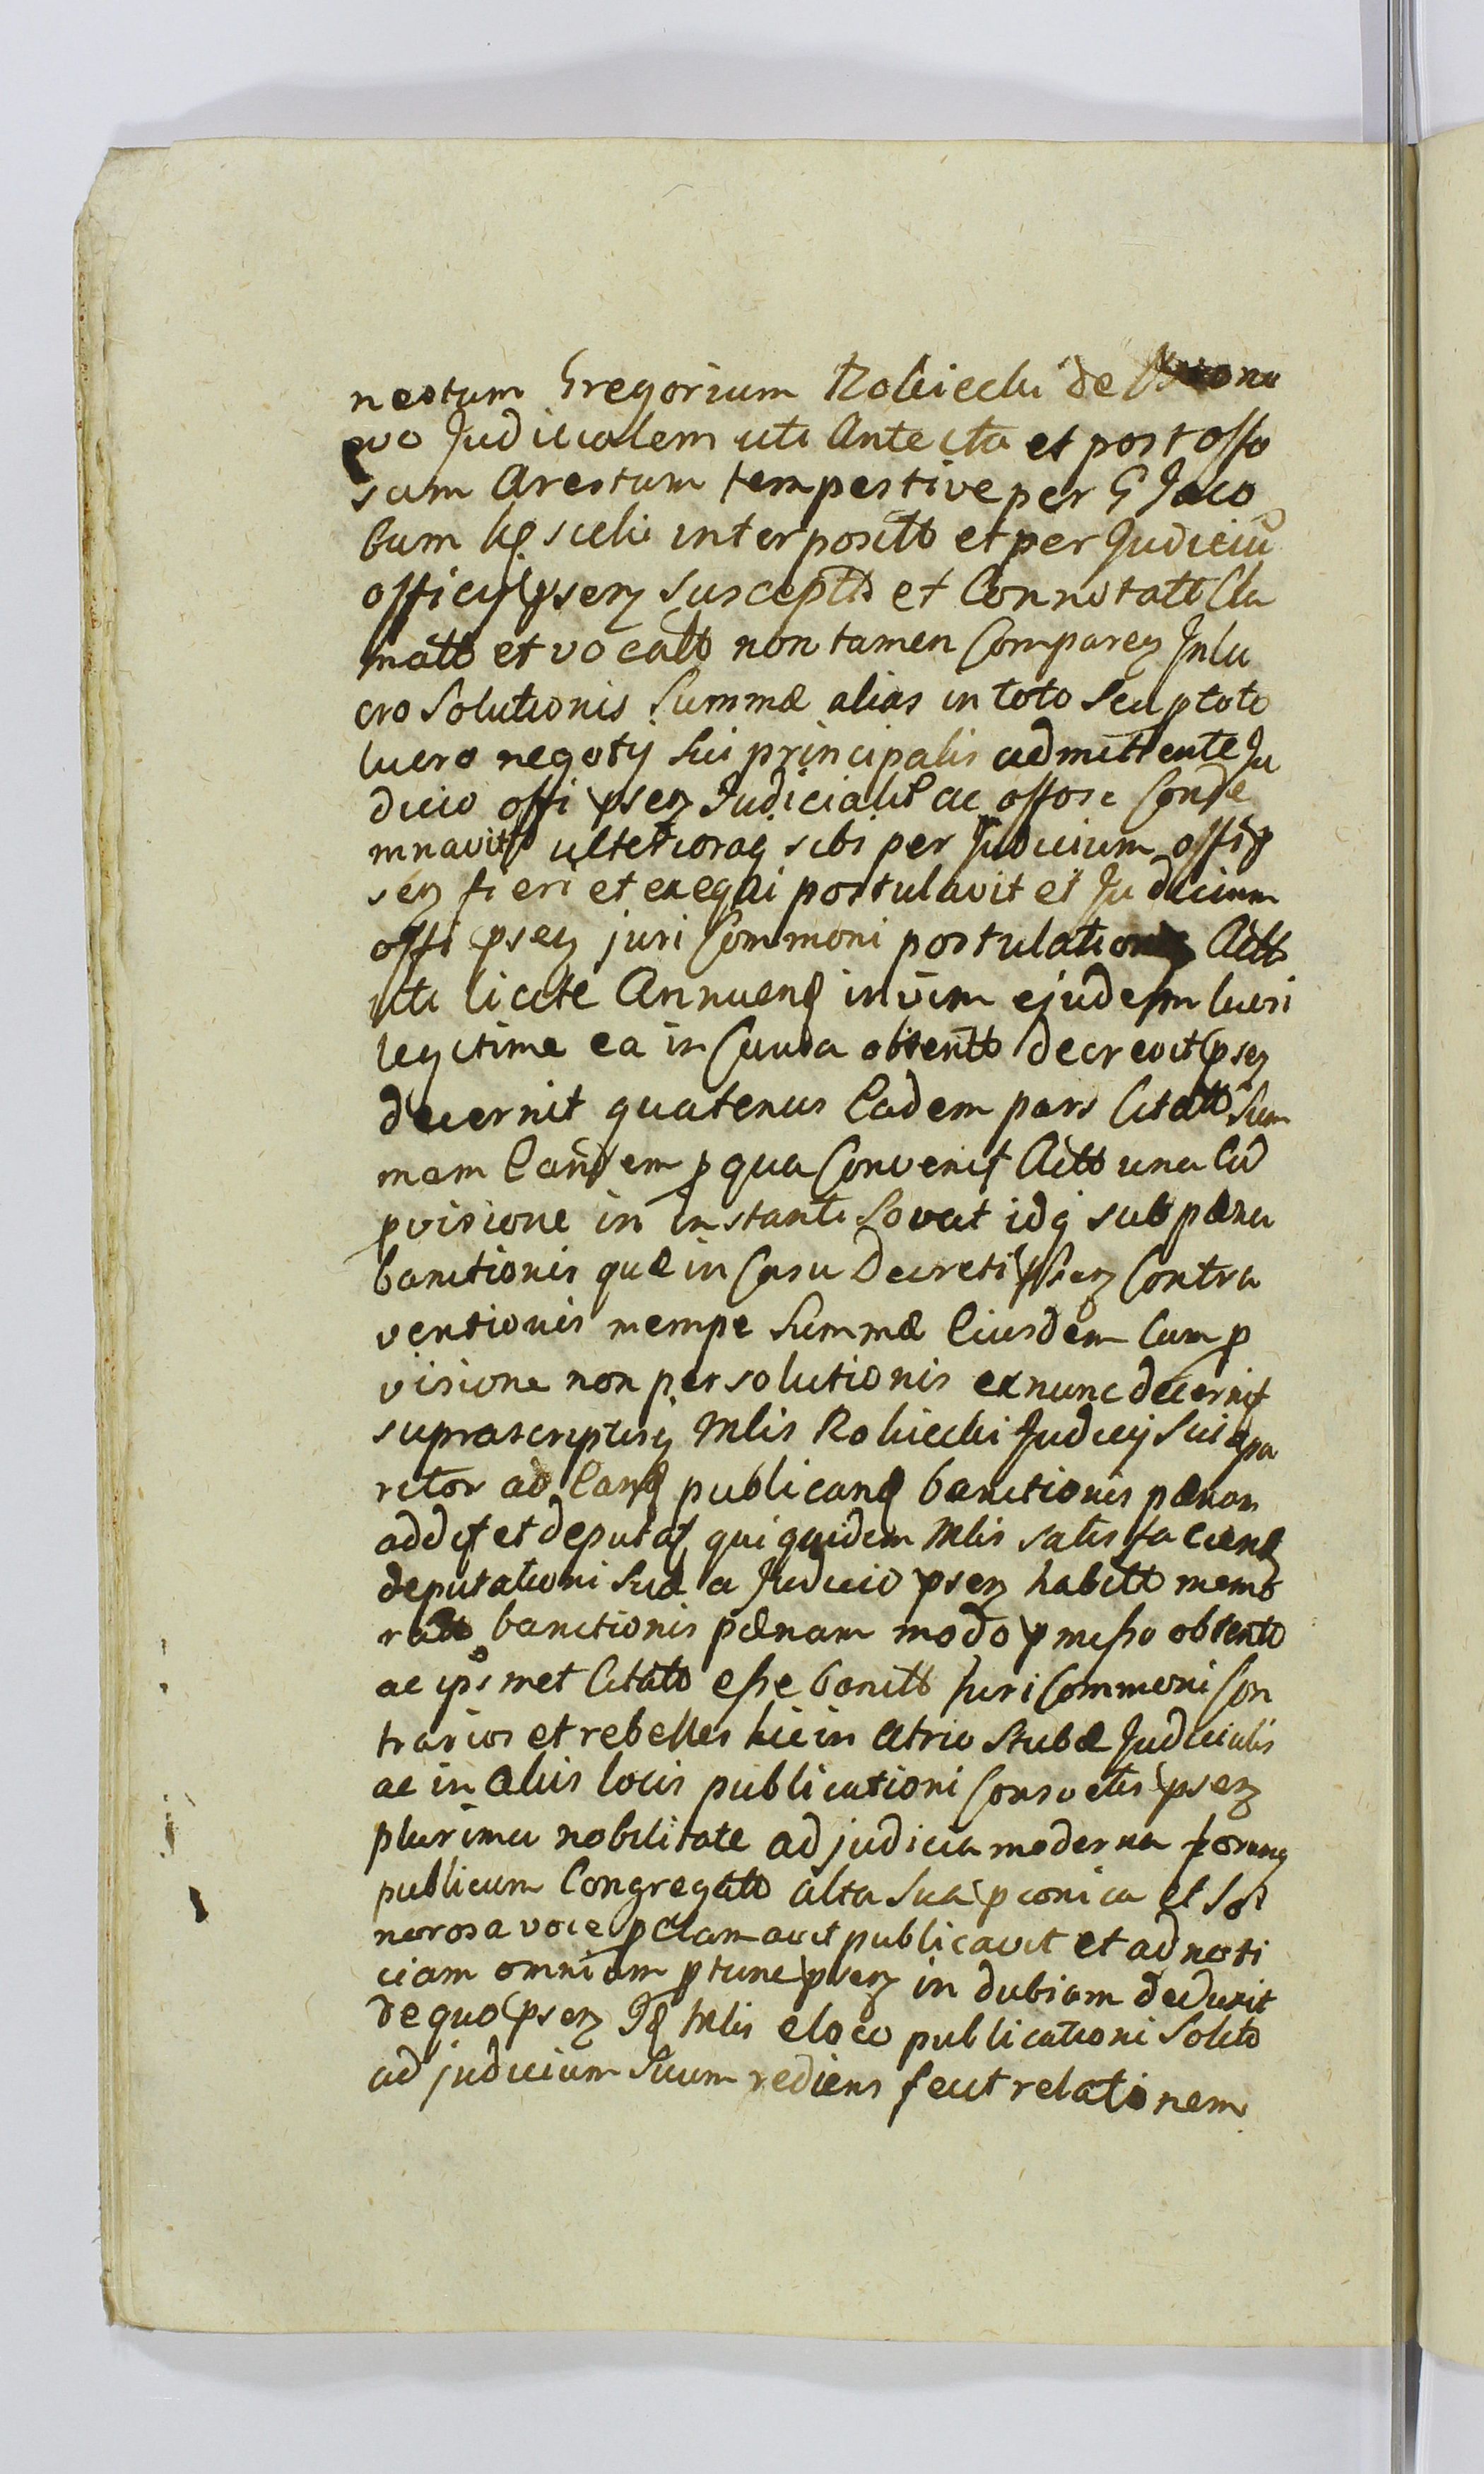 nestum Gregorium Rokiecki de
vo Judicialem uti Ante ita et post offo
sum Arestum tempestive per G Jaco
bum interpositt et per Judiciu
officij psens susceptt et Connotatt Cla
matt et vocatt non tamen Comparen Inlu
cro Solutionis Summæ alias in toto seu ptoto
lucro negotij sui principalis admittente Ju
dicio offi psen Judicialit ac offose Conde
mnavit ulterioraq sibi per Judicium offi p
sen fieri et exeqai postulavit et Judicium
offi psen juri Commoni postulationiq Actt
uti licite Annuend invim ejudem lucri
legitime ea in Causa obtentt decrevit psen
decernit quatenus Eadem pars Citatt Sum
mam Eandem p qua Convenit Actt una Cu
pvisione in instanti Sovat idq sub pæna
banitionis quæ in Casu Decreti psen Contra
ventionis nempe Summæ Eiusdem Cum p
visione non persolutionis exnunc decernit
suprascriptusq Mlis Rokiecki Judicij Sui apa
ritor ad Eand publicand banitionis pænam
addit et deputat qui quidem Mlis satis faciend
deputationi suæ a Judicio psen habitt memo
ratt banitionis pænam modo pmisso obtentt
ac ipsmet Citatt esse banitt Juri Commoni Con
trarios et rebelles hic in Atrio Stubæ Judicialis
ac in Aliis locis publicationi Consvetis psen
plurima nobilitate ad judicia moderna forumq
publicum Congregatt alta sua pconica et So
norosa voce pclamavit publicavit et ad noti
ciam omniam ptunc psen in dubiam deduxit
de quo psen Id Mlis eloco publicationi Solito
ad judicium Suum rediens fecit relationem